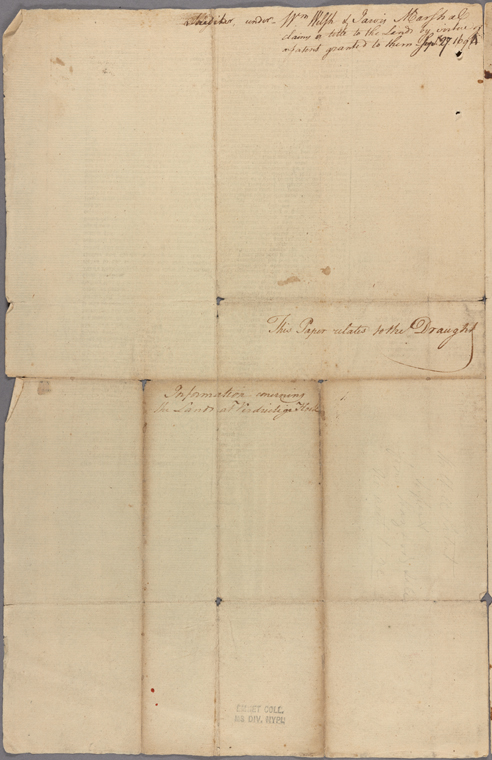 under Wm Welsh & Jarvis Marshal
claims a title to the Lands by virtue of
a patent granted to them Sept. 27 1696
This Paper relates to the Draught
Information concerning
the Lands at
EMMET COLL.
MS. DIV. NYPL